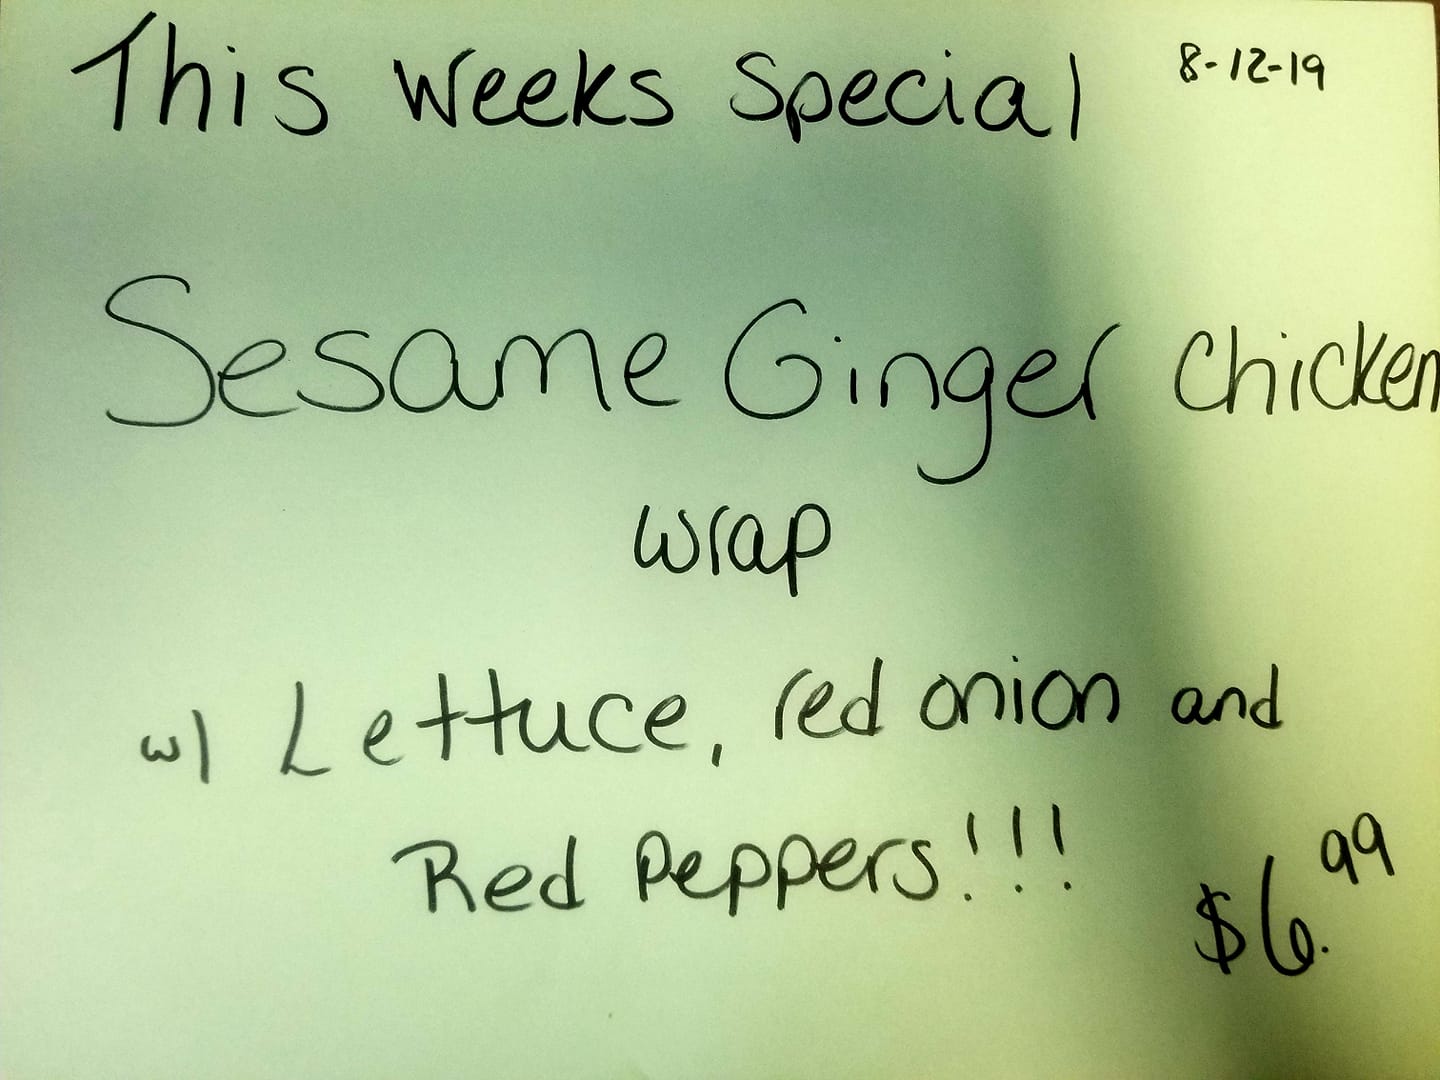 This Weeks Special 8-12-19
Sesame Ginger Chicken
Wrap
w/ Lettuce, red onion and
Red Peppers!!!
$6.99